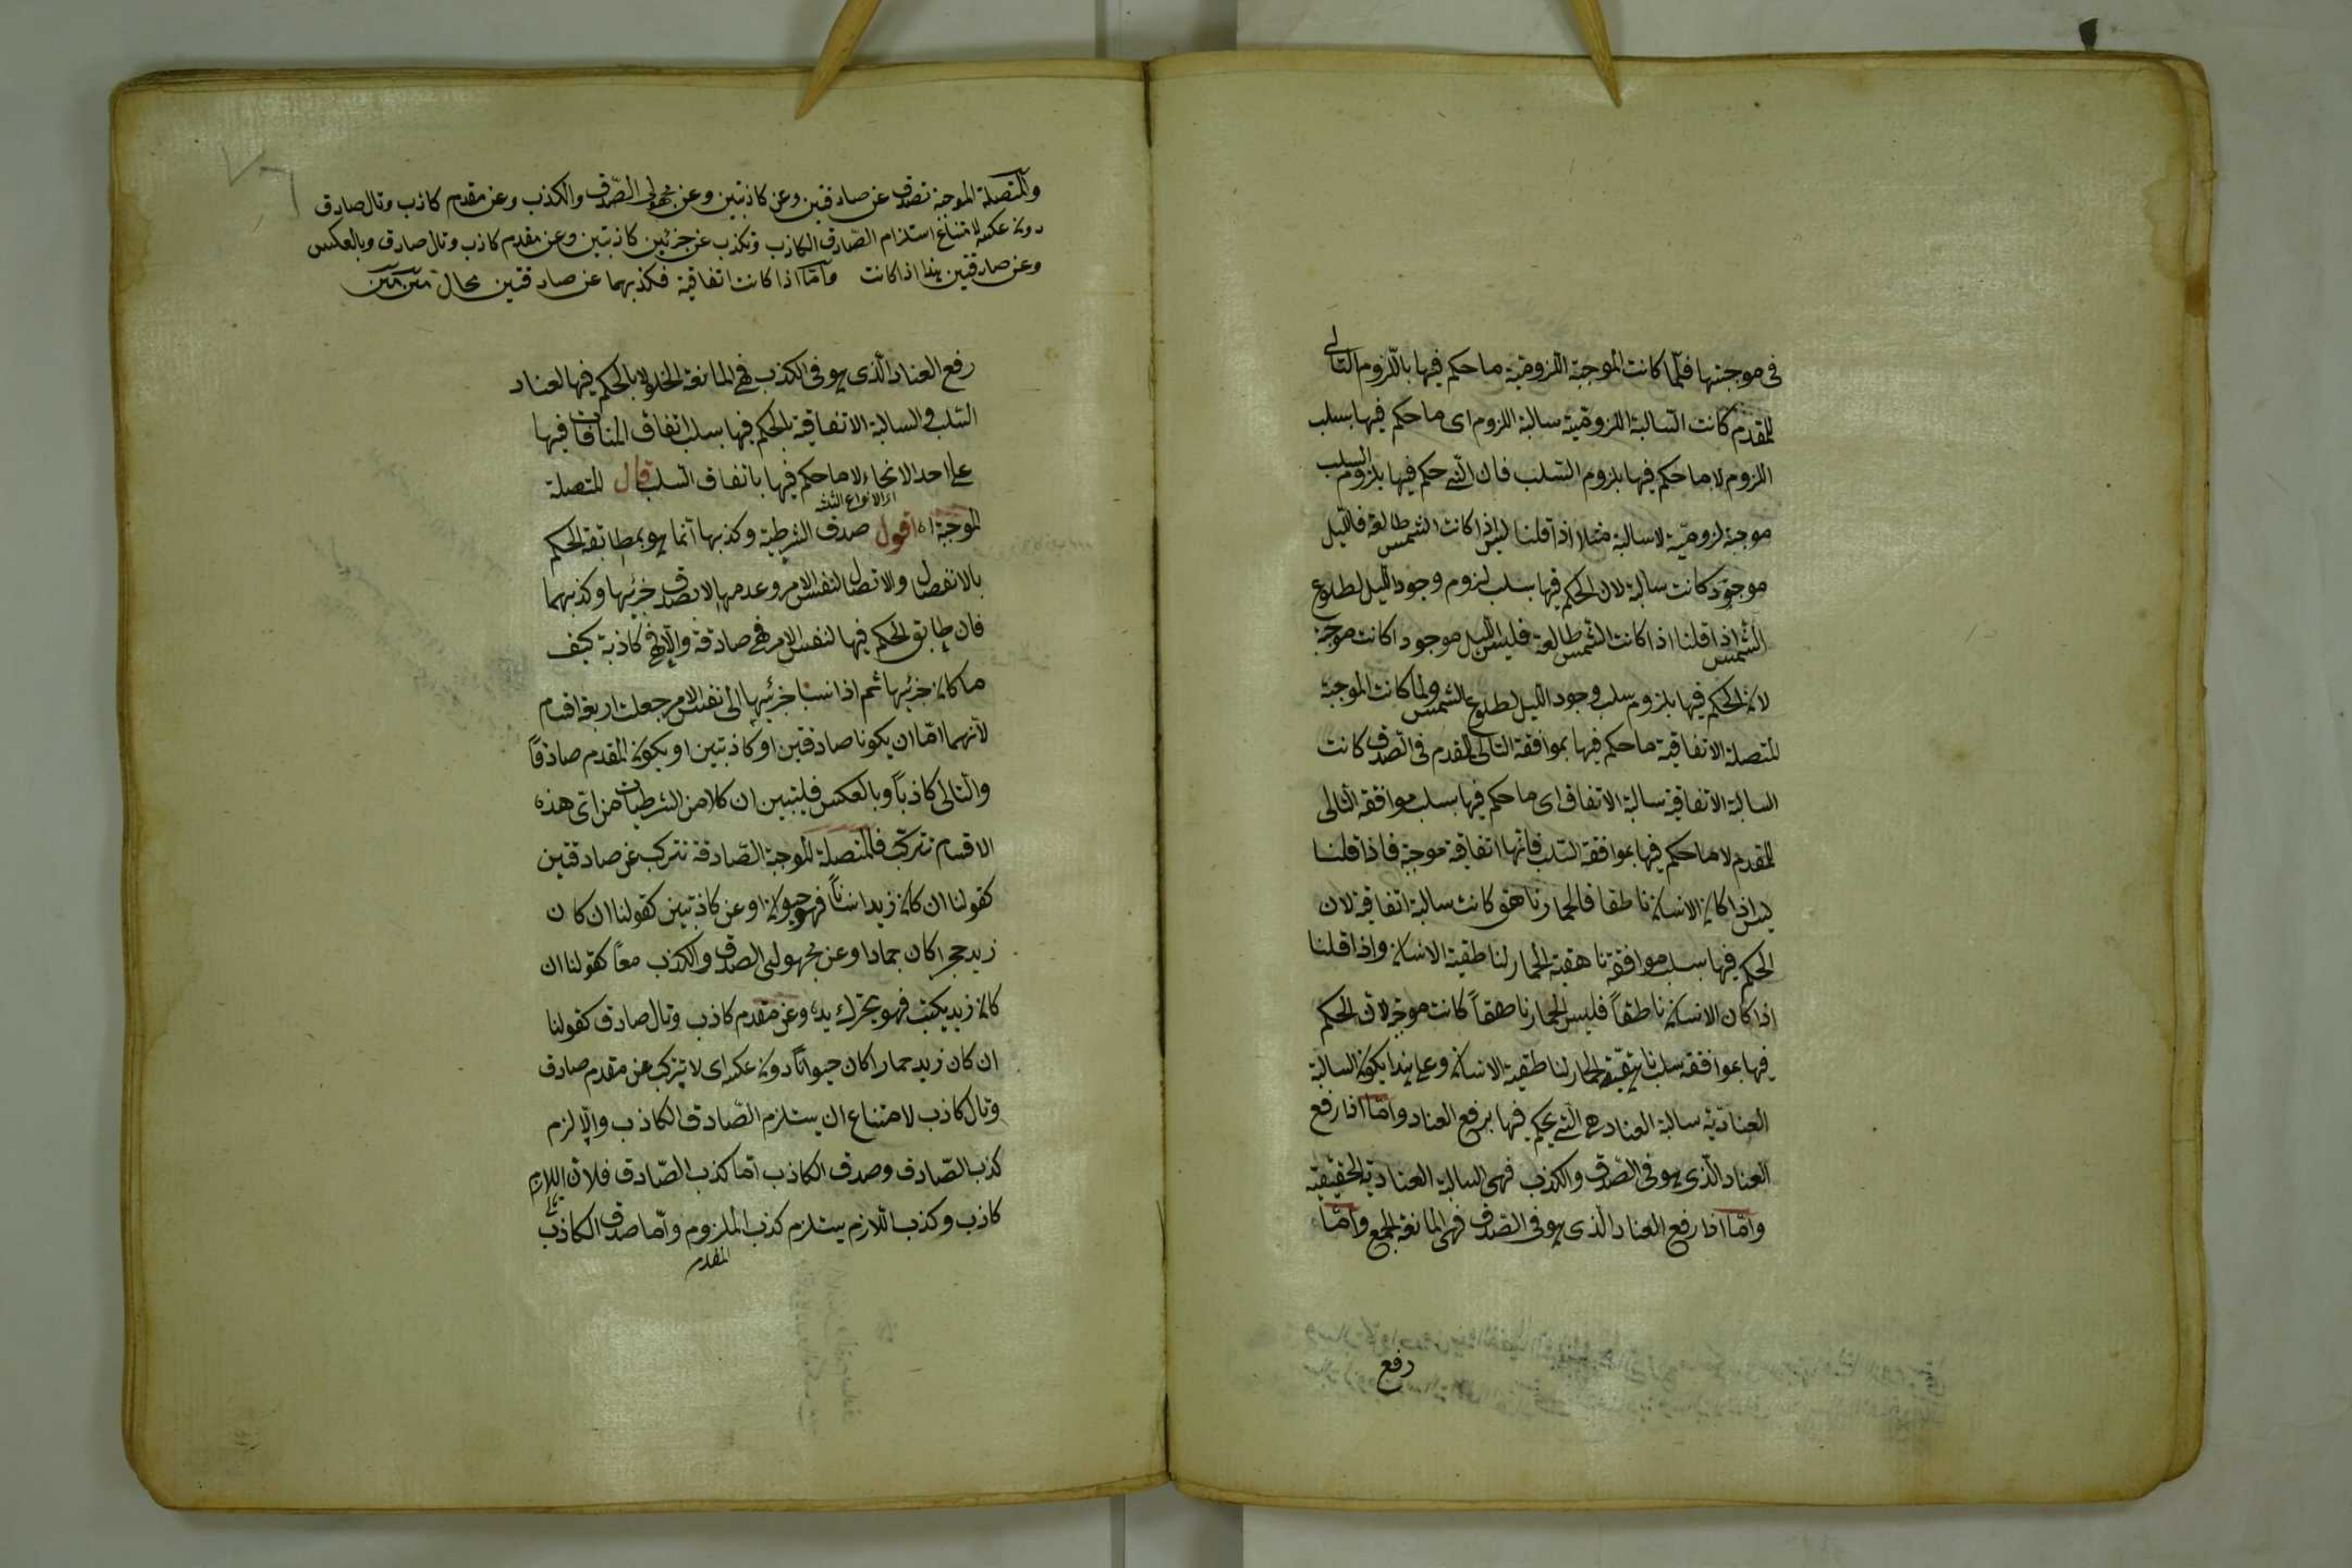 فى موجبتها فلما كانت الموجبة اللزومية ما حكم فيها باللزوم التالى
للمقدم كانت السالبة اللزومية سالبة اللزوم اى ما حكم فيها بسلب
اللزوم لا ما حكم فيها بلزوم السلب فان التى حكم فيها بلزوم السلب
موجبة لزومية لا سالبة مثلا اذا قلنا ليس اذا كانت الشمس طالعة فالليل
موجود كانت سالبة لان الحكم فيها بسلب لزوم وجود الليل لطلوع
الشمس اذا قلنا اذا كانت الشمس طالعة فليس الليل موجودا كانت موجبة
لان الحكم فيها بلزوم سلب وجود الليل لطلوع الشمس ولما كانت الموجبة
المتصلة الاتفاقية ما حكم فيها بموافقة التالى للمقدم فى الصدق كانت
السالبة الاتفاقية سالبة الاتفاق اى ما حكم فيها بسلب موافقة التالى
للمقدم لا ما حكم فيها بموافقة السلب فانها اتفاقية موجبة فاذا قلنا
ليس اذا كان الانسان ناطقا فالحمار ناهق كانت سالبة اتفاقية لان
الحكم فيها بسلب موافقة ناهقية الحمار لناطقية الانسان واذا قلنا
اذا كان الانسان ناطقاً فليس الحمار ناهقاً كانت موجبة لان الحكم
فيها بموافقة سلب ناهقية الحمار لناطقية الانسان وعلى هذا يكون السالبة
العنادية سالبة العناد هى التى يحكم فيها برفع العناد واما اذا رفع
العناد الذى هو فى الصدق والكذب فهى السالبة العنادية الحقيقية
واما اذا رفع العناد الذى هو فى الصدق فهى المانعة الجمع واما
رفع
والمتصلة الموجبة تصدق عن صادقين وعن كاذبتين وعن مجهولى الصدق والكذب وعن مقدم كاذب وتال صادق
دون عكسه لامتناع استلزام الصادق الكاذب وتكذب عن جزئين كاذبتين وعن مقدم كاذب وتال صادق وبالعكس
وعن صادقتين هذا اذا كانت واما اذا كانت اتفاقية فكذبهما عن صادقتين محال متن متن
رفع العناد الذى هو فى الكذب فهى المانعة الخلو لا بالحكم فيها لعناد
السلب والسالبة الاتفاقية بالحكم فيها بسلب اتفاق المنافات فيها
على احد الانحاء لا ما حكم فيها باتفاق السلب قال المتصلة
اى الانواع الثلثة
الموجبة اه اقول صدق الشرطية وكذبها انما هو بمطابقة الحكم
بالانفصال والاتصال لنفس الامر وعدمها لا بصدق جزئيها وكذبهما
فان طابق الحكم فيها لنفس الامر فهى صادقة والا فهى كاذبة كيف
ما كان جزئيها ثم اذا نسبنا جزئيها الى نفس الامر جعلت اربعة اقسام
لانهما اما ان يكونا صادقين او كاذبتين او يكون المقدم صادقاً
والتالى كاذباً وبالعكس فليتبين ان كلا من الشرطيات من اى هذه
الاقسام تتركب فالمتصلة الموجبة الصادقة تتركب عن صادقتين
كقولنا ان كان زيد انساناً فهو حيوان او عن كاذبتين كقولنا ان كان
زيد حجرا كان جمادا وعن مجهولى الصدق والكذب معاً كقولنا ان
كان زيد يكتب فهو يتحرك يده وعن مقدم كاذب وتال صادق كقولنا
ان كان زيد حمارا كان حيواناً دون عكسه اى لا يتركب عن مقدم صادق
وتال كاذب لامتناع ان يستلزم الصادق الكاذب والا لزم
كذب الصادق وصدق الكاذب اما كذب الصادق فلان اللازم
كاذب وكذب اللازم يستلزم كذب الملزوم واما صدق الكاذب
المقدم